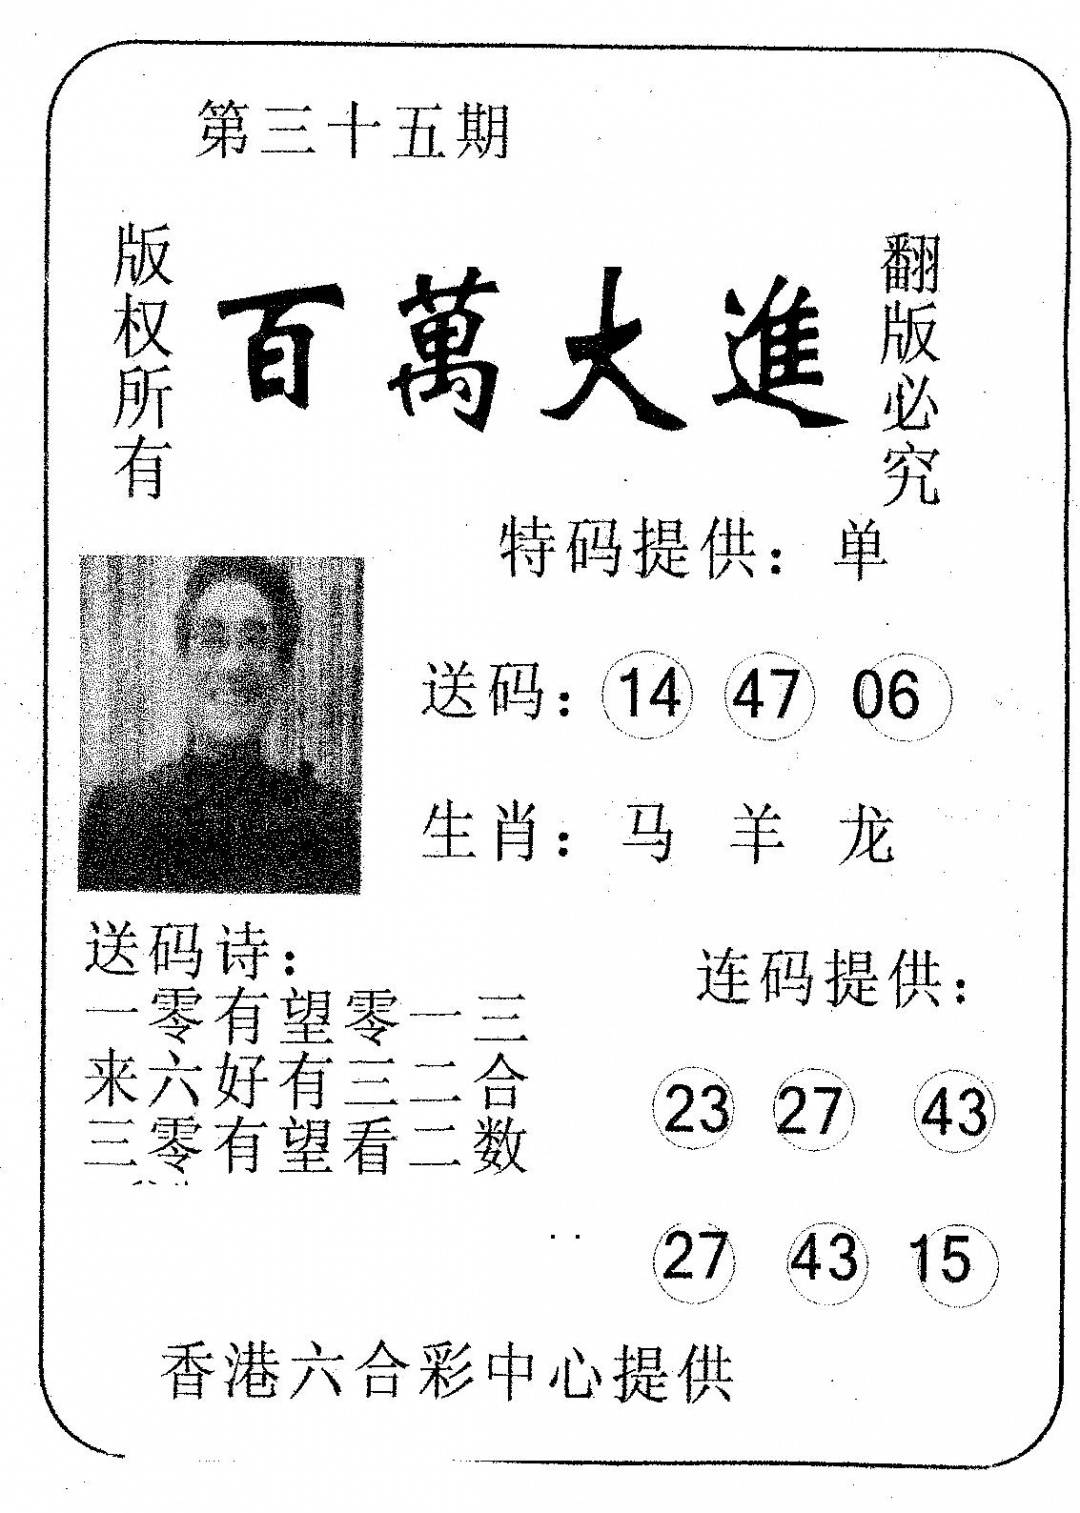 第三十五期
版权所有
百萬大進
翻版必究
特码提供：单
送码：14 47 06
生肖：马 羊 龙
送码诗：
一零有望零一三
来六好有三二合
三零有望看二数
连码提供：
23 27 43
27 43 15
香港六合彩中心提供